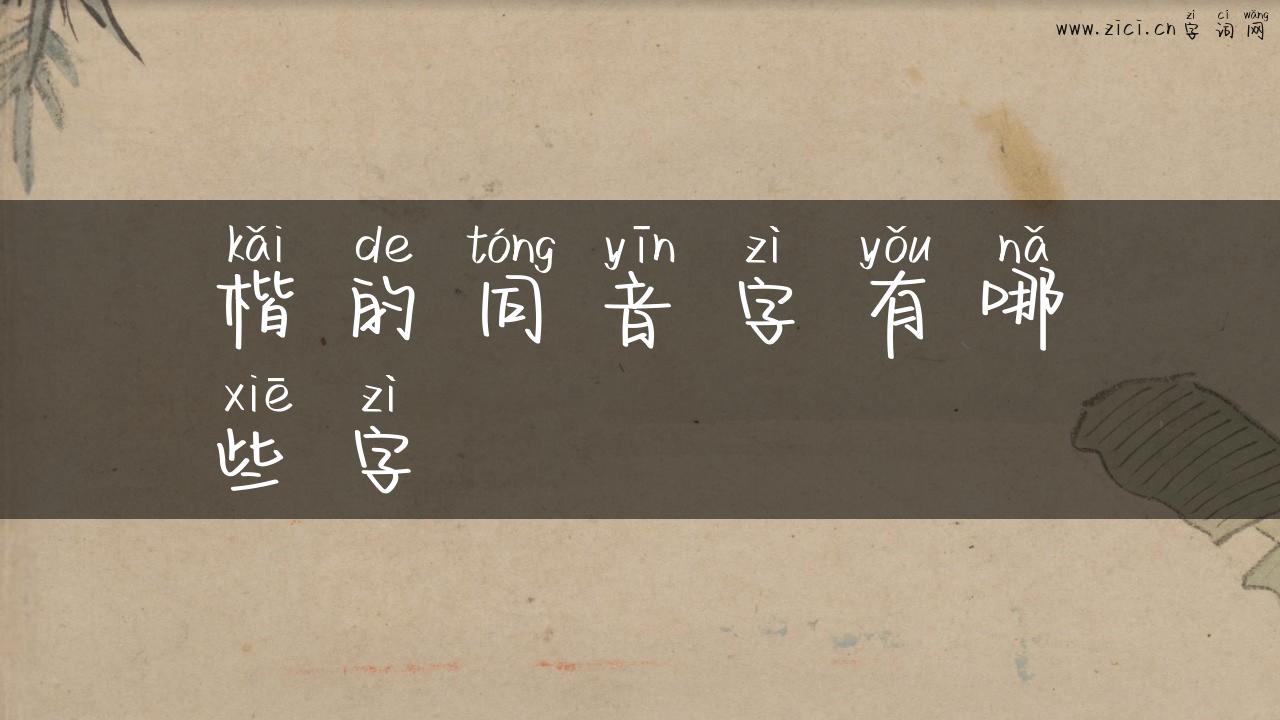 zì cí wǎng
www.zicí.cn 字词网
kǎi de tóng yīn zì yǒu nǎ
楷的同音字有哪
xiē zì
些字